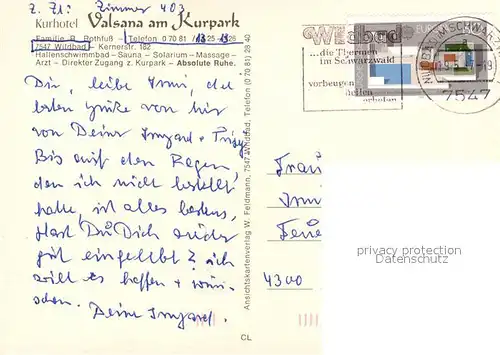 z. Zt. Zimmer 403
Kurhotel Valsana am Kurpark
Familie R. Rothfuß
7547 Wildbad - Kernerstr. 182
Telefon 0 70 81
Hallenschwimmbad - Sauna - Solarium - Massage-
Arzt - Direkter Zugang z. Kurpark - Absolute Ruhe.
Dir, liebe Irmi, die
besten Grüße von hier
von Deiner Irmgard +
Bis auf den Regen,
den ich nicht bestellt
hatte, ist alles bestens,
Hast Du Dich wieder
gut eingelebt? ich
will es hoffen + wün-
schen. Deine Irmgard.
Ansichtskartenverlag W. Feldmann, 7547 Wildbad, Telefon (0 70 81) 28 40
CL
Wildbad
...die Thermen
im Schwarzwald
vorbeugen
heilen
erholen
WILDBAD IM SCHWARZ
7547
Frau
Irm
4300
privacy protection
Datenschutz